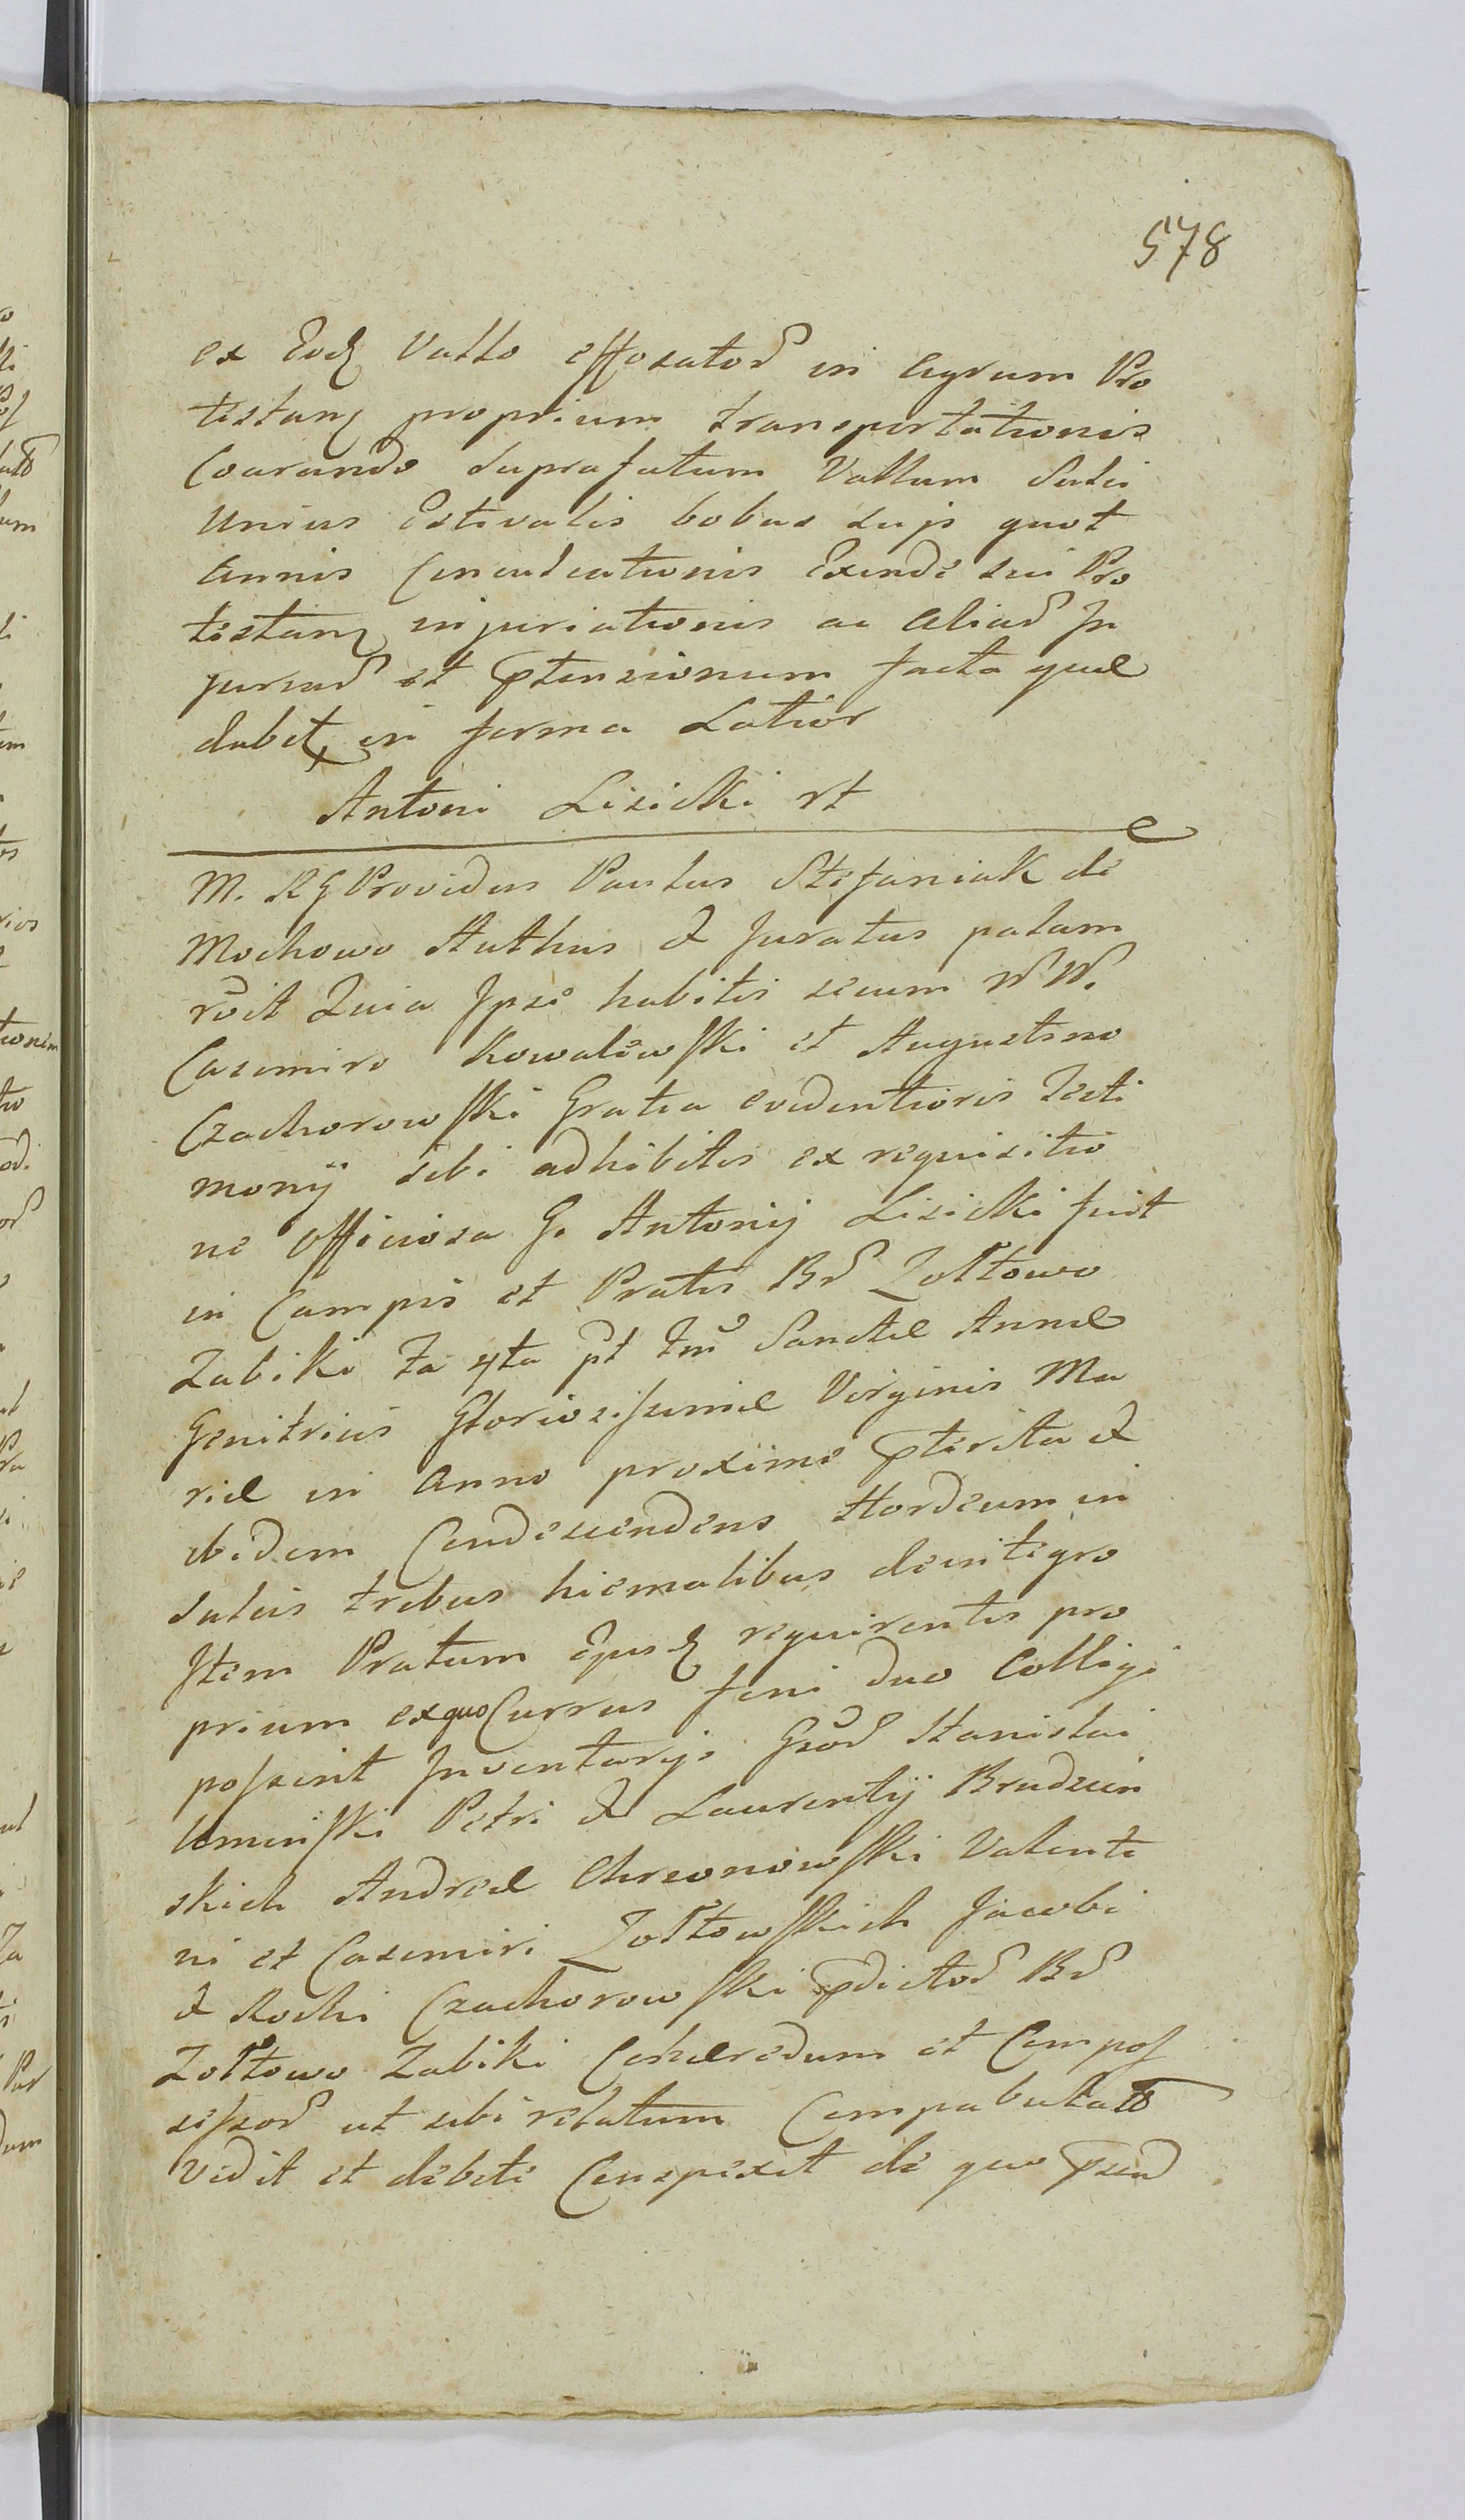 578
ex Eod Vallo effozator in Agrum Pro
testan proprium transportationis
Coarando suprafatum Vallum Sulci
unius Estivalis bobus suis quot
Annis Conculcationis Exinde sui Pro
testan injuriationis ac aliar In
juriar et ptensionum facta quæ
dabit in forma Latior
Antoni Lisicki rt
M. RG Providus Paulus Stefaniak de
Mochowo Authus & Juratus palam
rvit Quia Ipse habitis secum N N.
Casimiro Kowalewski et Augustino
Czachorowski Gratia evidentioris Testi
monÿ sibi adhibitis ex requisitio
ne officiosa G. Antonij Lisicki fuit
in Campis et Pratis Br Zołtowo
Zabiki Fa 4ta pt Fm Sanctæ Annæ
Genitricis Gloriosissimæ Virginis Ma
riæ in Anno proxime pterita &
ibidem Condescendens Hordeum in
sulcis tribus hiemalibus deintegro
Item Pratum Ejusd requirentis pro
prium exquo Currus feni duo Colligi
possent Inventarijs Gsor Stanislai
Uminski Petri & Laurentÿ Brudzin
skich Andreæ Chrzonowski Valenti
ni et Casimiri Zołtowskich Jacobi
& Rochi Czachorowski pdictor Br
Zołtowo Zabiki Cohæredum et Compos
sessor ut sibi relatum Compabulato
Vidit et debite Conspexit de quo psend